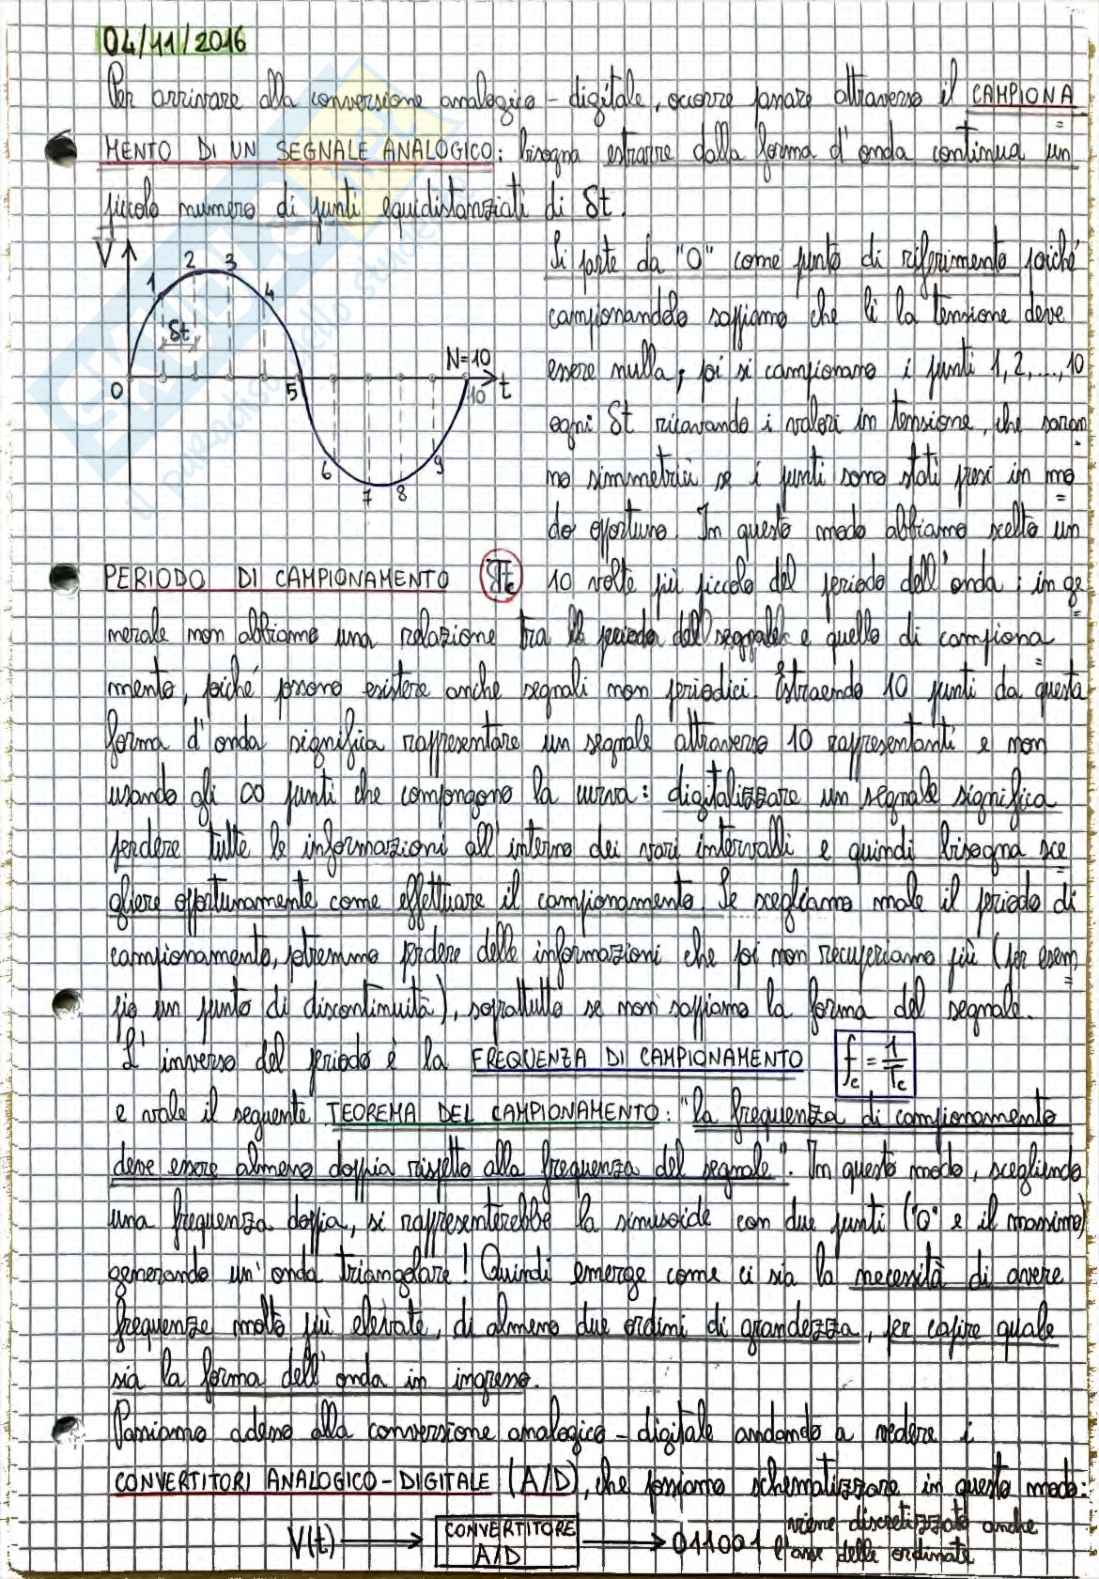 04/11/2016
Per arrivare alla conversione analogico-digitale, occorre passare attraverso il CAMPIONA
MENTO DI UN SEGNALE ANALOGICO: bisogna estrarre dalla forma d'onda continua un
piccolo numero di punti equidistanziati di δt.
V
1
2
3
4
δt
0
5
6
7
8
9
N=10
10
t
Si parte da "0" come punto di riferimento poiché
campionandolo sappiamo che lì la tensione deve
essere nulla; poi si campionano i punti 1,2,...,10
ogni δt ricavando i valori in tensione, che saran
no simmetrici se i punti sono stati presi in mo
do opportuno. In questo modo abbiamo scelto un
PERIODO DI CAMPIONAMENTO Tc 10 volte più piccolo del periodo dell'onda; in ge
nerale non abbiamo una relazione tra il periodo del segnale e quello di campiona
mento, poiché possono esistere anche segnali non periodici. Estraendo 10 punti da questa
forma d'onda significa rappresentare un segnale attraverso 10 rappresentanti e non
usando gli ∞ punti che compongono la curva: digitalizzare un segnale significa
perdere tutte le informazioni all'interno dei vari intervalli e quindi bisogna sce
gliere opportunamente come effettuare il campionamento. Se scegliamo male il periodo di
campionamento, potremmo perdere delle informazioni che poi non recuperiamo più (per esem
pio un punto di discontinuità), soprattutto se non sappiamo la forma del segnale.
L'inverso del periodo è la FREQUENZA DI CAMPIONAMENTO fc = 1/Tc
e vale il seguente TEOREMA DEL CAMPIONAMENTO: "la frequenza di campionamento
deve essere almeno doppia rispetto alla frequenza del segnale". In questo modo, scegliendo
una frequenza doppia, si rappresenterebbe la sinusoide con due punti ("0" e il massimo)
generando un'onda triangolare! Quindi emerge come ci sia la necessità di avere
frequenze molto più elevate, di almeno due ordini di grandezza, per capire quale
sia la forma dell'onda in ingresso.
Passiamo adesso alla conversione analogico-digitale andando a vedere i
CONVERTITORI ANALOGICO-DIGITALE (A/D), che possiamo schematizzare in questo modo:
V(t) → CONVERTITORE A/D → 011001 viene discretizzato anche
l'asse delle ordinate